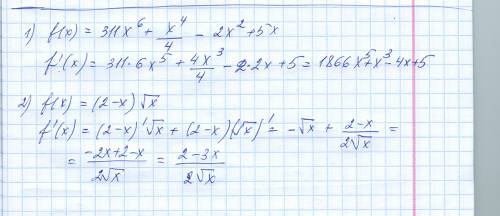 1) f(x) = 311x⁶ + x⁴/4 - 2x² + 5x
f'(x) = 311·6x⁵ + 4x³/4 - 2·2x + 5 = 1866x⁵ + x³ - 4x + 5
2) f(x) = (2-x)√x
f'(x) = (2-x)'√x + (2-x)(√x)' = -√x + (2-x)/(2√x) =
= (-2x+2-x)/(2√x) = (2-3x)/(2√x)